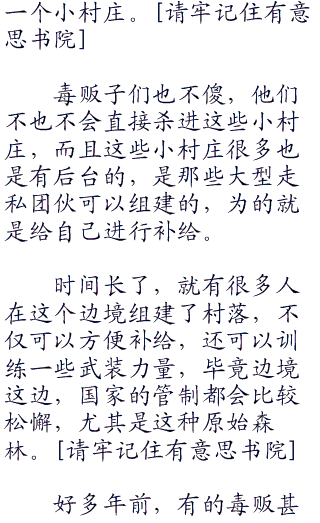 一个小村庄。[请牢记住有意
思书院]
毒贩子们也不傻，他们
不也不会直接杀进这些小村
庄，而且这些小村庄很多也
是有后台的，是那些大型走
私团伙可以组建的，为的就
是给自己进行补给。
时间长了，就有很多人
在这个边境组建了村落，不
仅可以方便补给，还可以训
练一些武装力量，毕竟边境
这边，国家的管制都会比较
松懈，尤其是这种原始森
林。[请牢记住有意思书院]
好多年前，有的毒贩甚